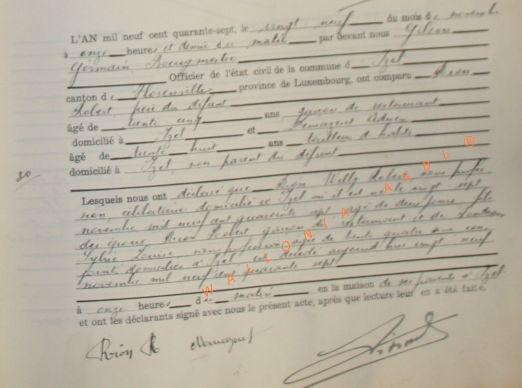 L'AN mil neuf cent quarante-sept, le vingt neuf du mois de novembre
à onze heures et demie du matin par devant nous Gilson
Germain, Bourgmestre
Officier de l'état civil de la commune d' Izel
canton de Florenville province de Luxembourg, ont comparu Rion
Robert, père du défunt
âgé de trente cinq ans, garçon de restaurant
domicilié à Izel et
âgé de trente huit ans tailleur d'habits
domicilié à Izel, non parent du défunt
30
Lesquels nous ont déclaré que Rion Willy Robert, sans profes
sion, célibataire domicilié à Izel où il est né le vingt sept
novembre mil neuf cent quarante sept, âgé de deux jours, fils
des époux Rion Robert garçon de restaurant et de
Sylvie Louise, sans profession âgée de trente quatre ans con
joints domiciliés à Izel est décédé aujourd'hui vingt neuf
novembre mil neuf cent quarante sept
à onze heures du matin en la maison de ses parents à Izel
et ont les déclarants signé avec nous le présent acte, après que lecture leur en a été faite.
Rion R
WALLONIA ASBL ©